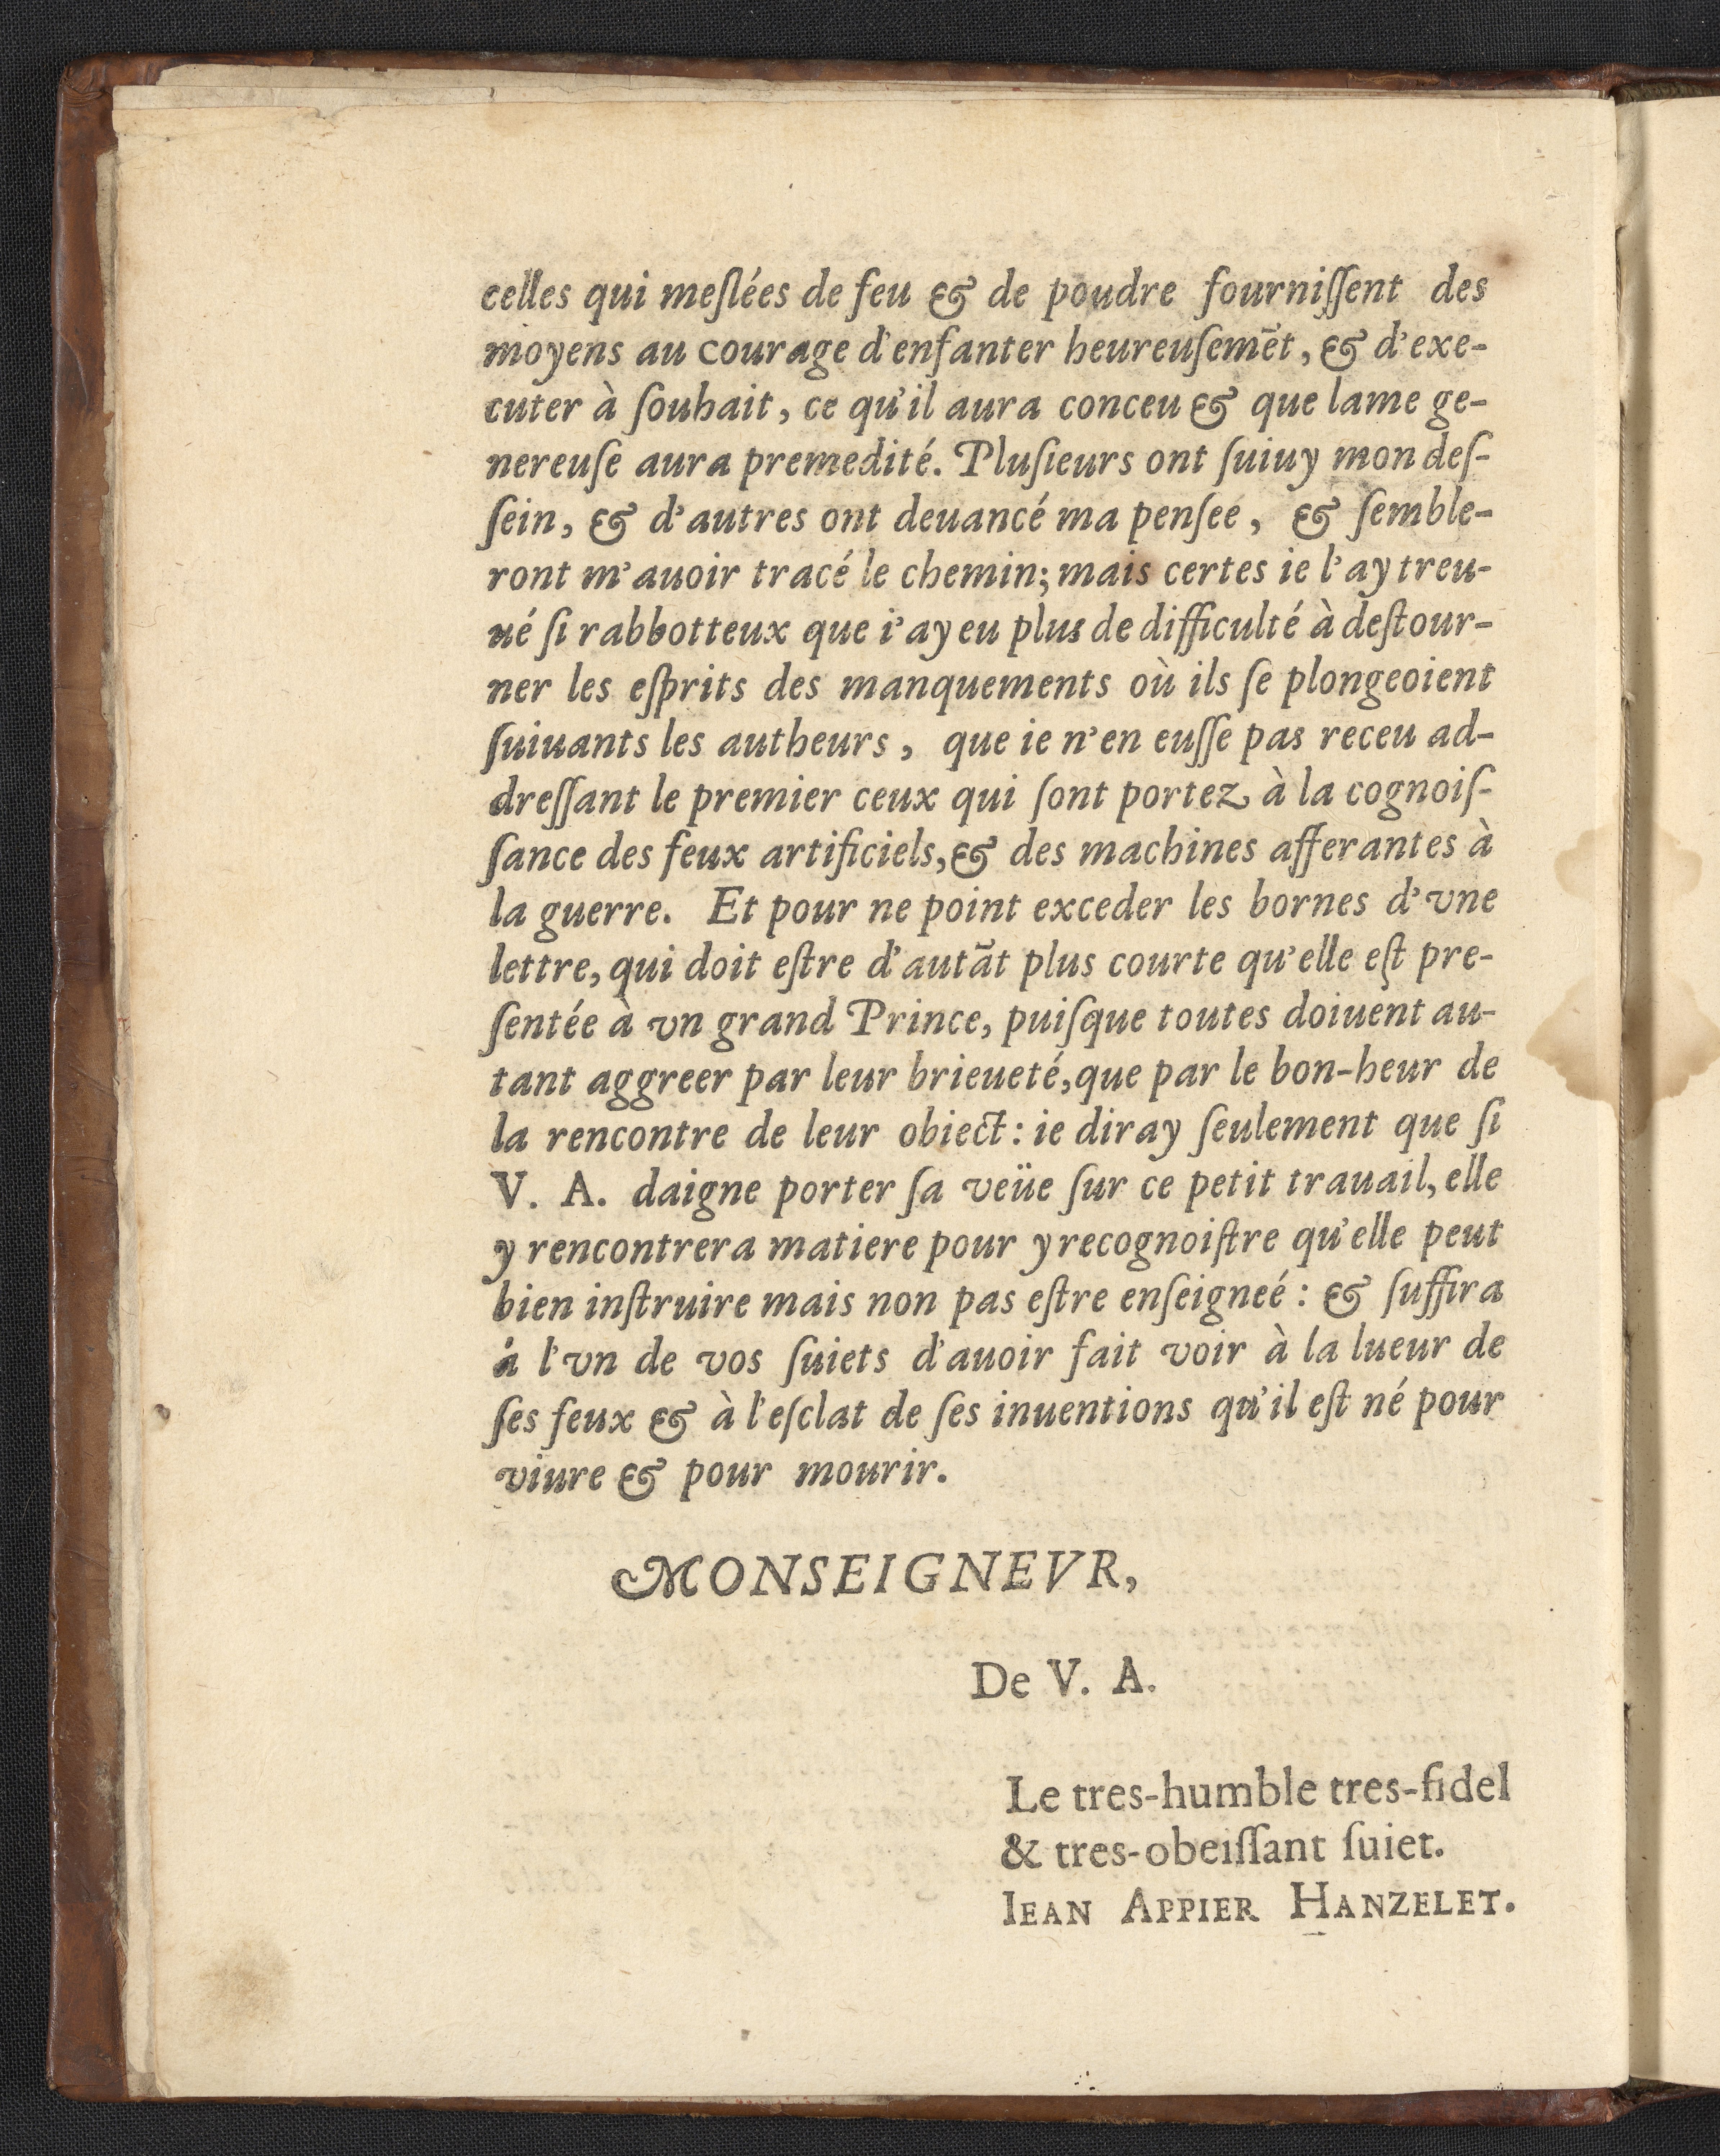 celles qui meſlées de feu & de poudre fourniſſent des
moyens au courage d'enfanter heureuſemẽt, & d'exe-
cuter à ſouhait, ce qu'il aura conceu & que lame ge-
nereuſe aura premedité. Pluſieurs ont ſuiuy mon deſ-
ſein, & d'autres ont deuancé ma penſee, & ſemble-
ront m'auoir tracé le chemin; mais certes ie l'ay treu-
ué ſi rabbotteux que i'ay eu plus de difficulté à deſtour-
ner les eſprits des manquements où ils ſe plongeoient
ſuiuants les autheurs, que ie n'en euſſe pas receu ad-
dreſſant le premier ceux qui ſont portez à la cognoiſ-
ſance des feux artificiels, & des machines afferantes à
la guerre. Et pour ne point exceder les bornes d'vne
lettre, qui doit eſtre d'autãt plus courte qu'elle eſt pre-
ſentée à vn grand Prince, puiſque toutes doiuent au-
tant aggreer par leur brieueté, que par le bon-heur de
la rencontre de leur obiect: ie diray ſeulement que ſi
V. A. daigne porter ſa veüe ſur ce petit trauail, elle
y rencontrera matiere pour y recognoiſtre qu'elle peut
bien inſtruire mais non pas eſtre enſeigneé: & ſuffira
à l'vn de vos ſuiets d'auoir fait voir à la lueur de
ſes feux & à l'eſclat de ſes inuentions qu'il eſt né pour
viure & pour mourir.
MONSEIGNEVR,
De V. A.
Le tres-humble tres-fidel
& tres-obeiſſant ſuiet.
IEAN APPIER HANZELET.